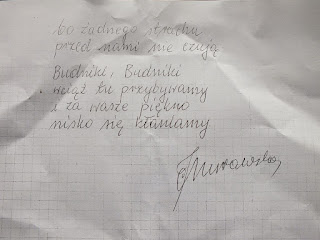 bo żadnego strachu
przed nami nie czują
Budniki, Budniki
wciąż tu przybywamy
i za wasze piękno
nisko się kłaniamy